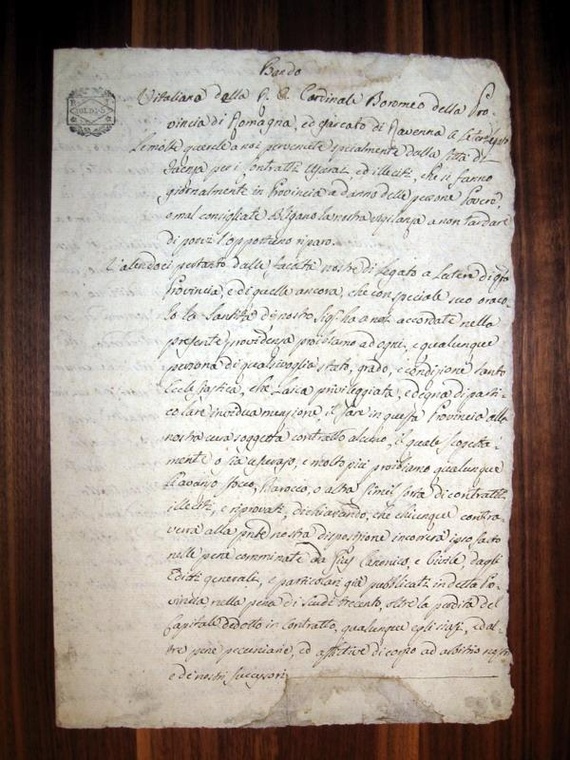 Bando
Vitaliano della S. R. C. Cardinale Boromeo della Pro-
vincia di Romagna, ed Esarcato di Ravenna a Latere Legato
Le molte querele a noi pervenute specialmente dalla Città di
Faenza per i contratti usuraj, ed illeciti, che si fanno
giornalmente in Provincia a danno delle persone povere,
o mal consigliate obligano la nostra vigilanza a non tardare
di porvi l'opportuno riparo.
Valendoci pertanto delle facoltà nostre di Legato a Latere di qta
Provincia, e di quelle ancora, che con speciale suo oraco-
lo la Santità di nostro Sigre ha a noi accordate nella
presente providenza proibiamo ad ogni, e qualunque
persona di qualsivoglia stato, grado, e condizione tanto
Ecclesiastica, che Laica privileggiata, e degna di parti-
colare individua menzione il fare in questa Provincia alla
nostra cura soggetta contratto alcuno, il quale
mente o sia usurajo, e molto più proibiamo qualunque
Barocco, o altra simil sorta di contratti
illeciti, e riprovati, dichiarando, che chiunque contra-
verà alla pnte nostra disposizione incorrerà ipso facto
nelle pene comminate da Jus Canonico, e Civile dagli
Editti generali, e particolari già publicati in detta Pro-
vincia nella pena di Scudi trecento, oltre la perdita del
Capitale dedotto in Contratto, qualunque egli siasi, ed al-
tre pene pecuniarie, ed afflittive di corpo ad arbitrio nostro
e de nostri successori